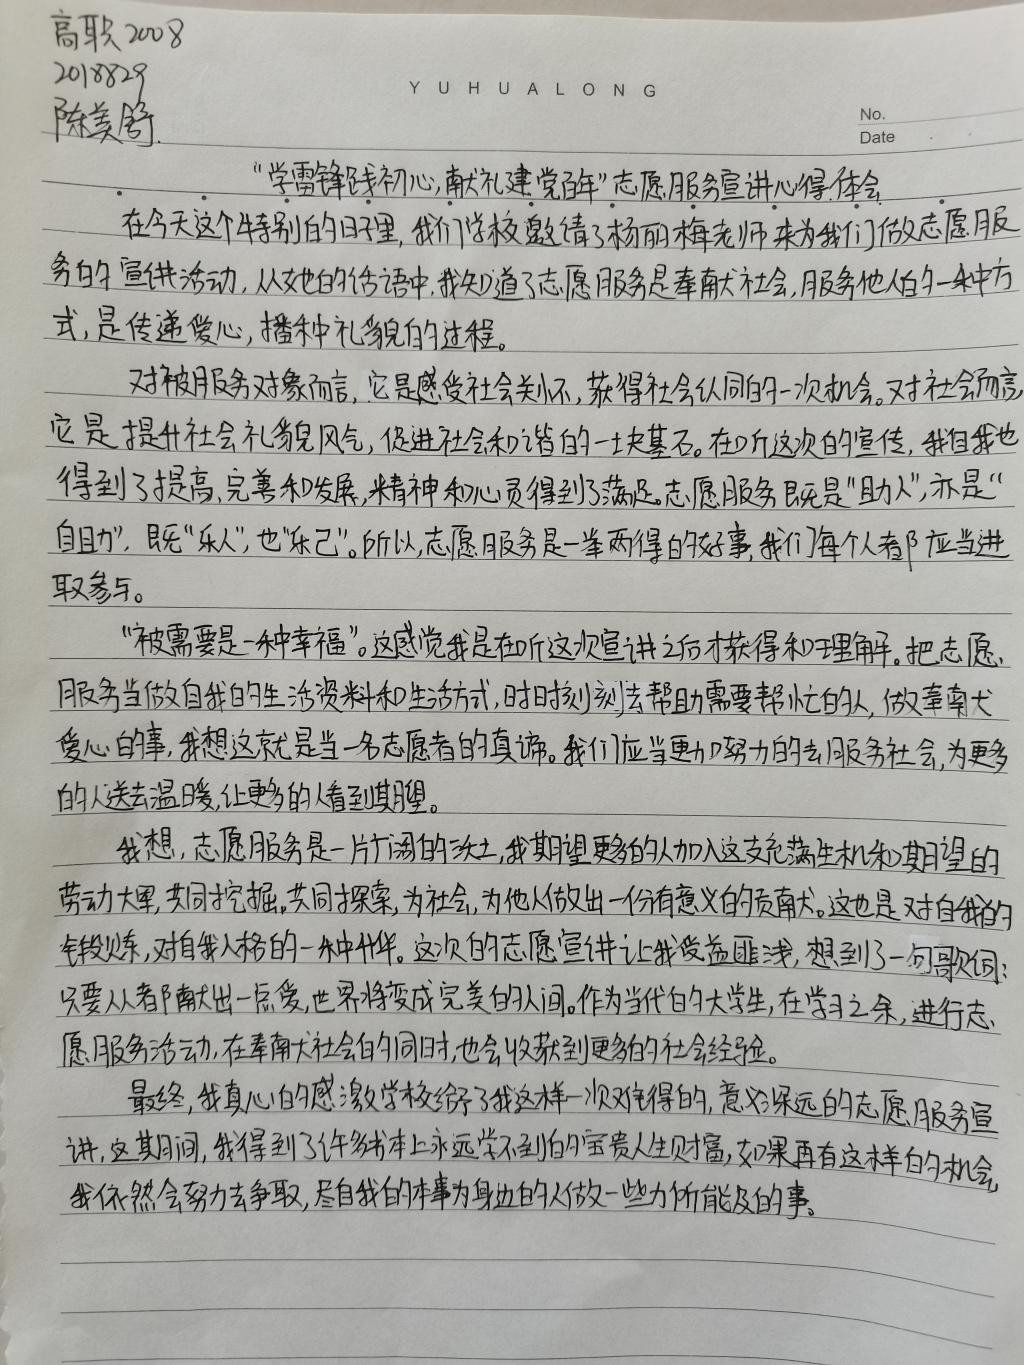 高职2008
2018829
陈美舒.
YUHUALONG
No.
Date
“学雷锋践初心,献礼建党百年”志愿服务宣讲心得体会
在今天这个特别的日子里,我们学校邀请了杨丽梅老师来为我们做志愿服
务的宣讲活动,从她的话语中,我知道了志愿服务是奉献社会,服务他人的一种方
式,是传递爱心,播种礼貌的过程。
对被服务对象而言,它是感受社会关怀,获得社会认同的一次机会。对社会而言,
它是提升社会礼貌风气,促进社会和谐的一块基石。在听这次的宣传,我自我也
得到了提高、完善和发展,精神和心灵得到了满足。志愿服务既是“助人”,亦是“
自助”,既“乐人”,也“乐己”。所以,志愿服务是一举两得的好事,我们每个人都应当进
取参与。
“被需要是一种幸福”。这感觉我是在听这次宣讲之后才获得和理解。把志愿
服务当做自我的生活资料和生活方式,时时刻刻去帮助需要帮忙的人,做奉献
爱心的事,我想这就是当一名志愿者的真谛。我们应当更加努力的去服务社会,为更多
的人送去温暖,让更多的人看到期望。
我想,志愿服务是一片广阔的沃土,我期望更多的人加入这支充满生机和期望的
劳动大军,共同挖掘,共同探索,为社会,为他人做出一份有意义的贡献。这也是对自我的
锻炼,对自我人格的一种升华。这次的志愿宣讲让我受益匪浅,想到了一句歌词:
只要人人都献出一点爱,世界将变成完美的人间。作为当代的大学生,在学习之余,进行志
愿服务活动,在奉献社会的同时,也会收获到更多的社会经验。
最终,我真心的感激学校给予了我这样一次难得的,意义深远的志愿服务宣
讲,这期间,我得到了许多书本上永远学不到的宝贵人生财富,如果再有这样的机会,
我依然会努力去争取,尽自我的本事为身边的人做一些力所能及的事。